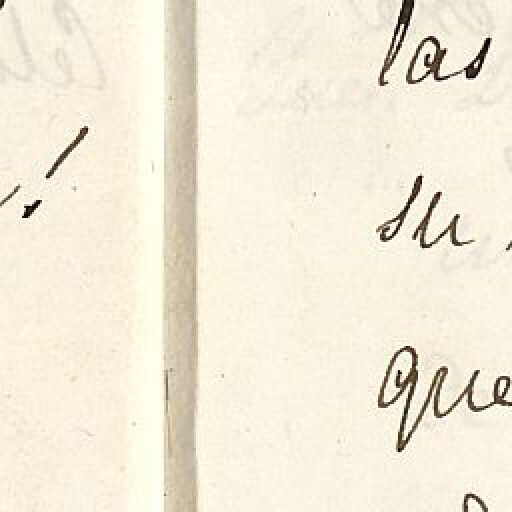 !
las
su
que